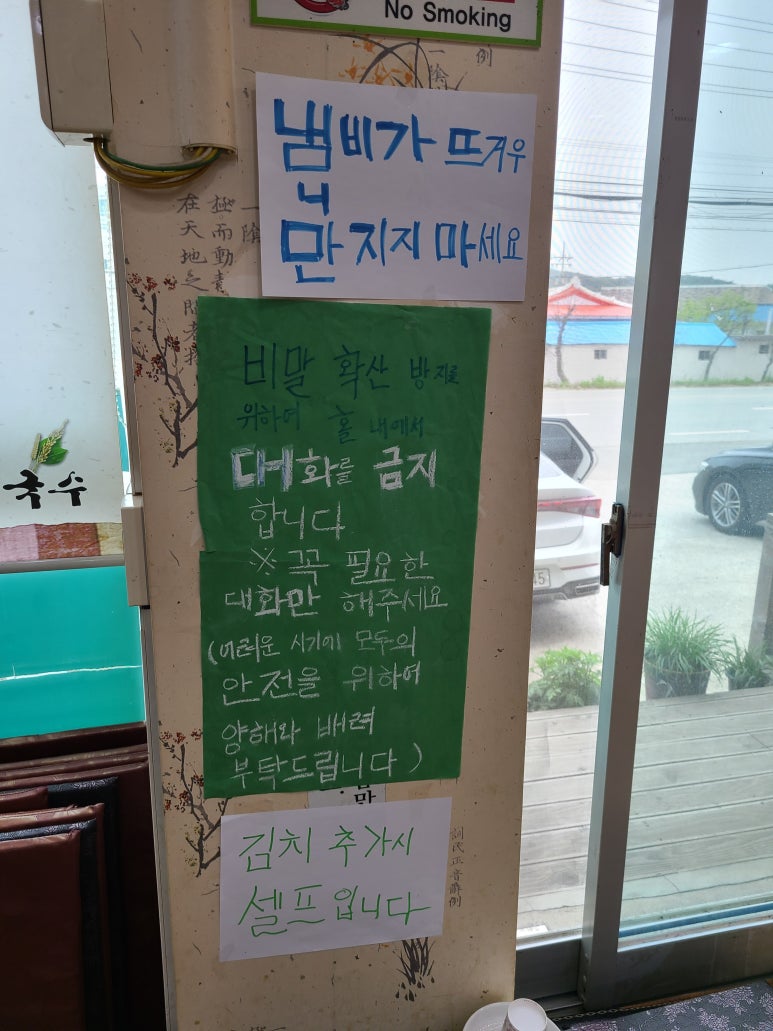 No Smoking
냄비가 뜨거우
니
만지지 마세요
비말 확산 방지를
위하여 홀 내에서
대화를 금지
합니다
※ 꼭 필요한
대화만 해주세요
(어려운 시기에 모두의
안전을 위하여
양해와 배려
부탁드립니다)
김치 추가시
셀프입니다
국수
例
一陰
一陰
極而動靜
在天地之間者
訓民正音解例